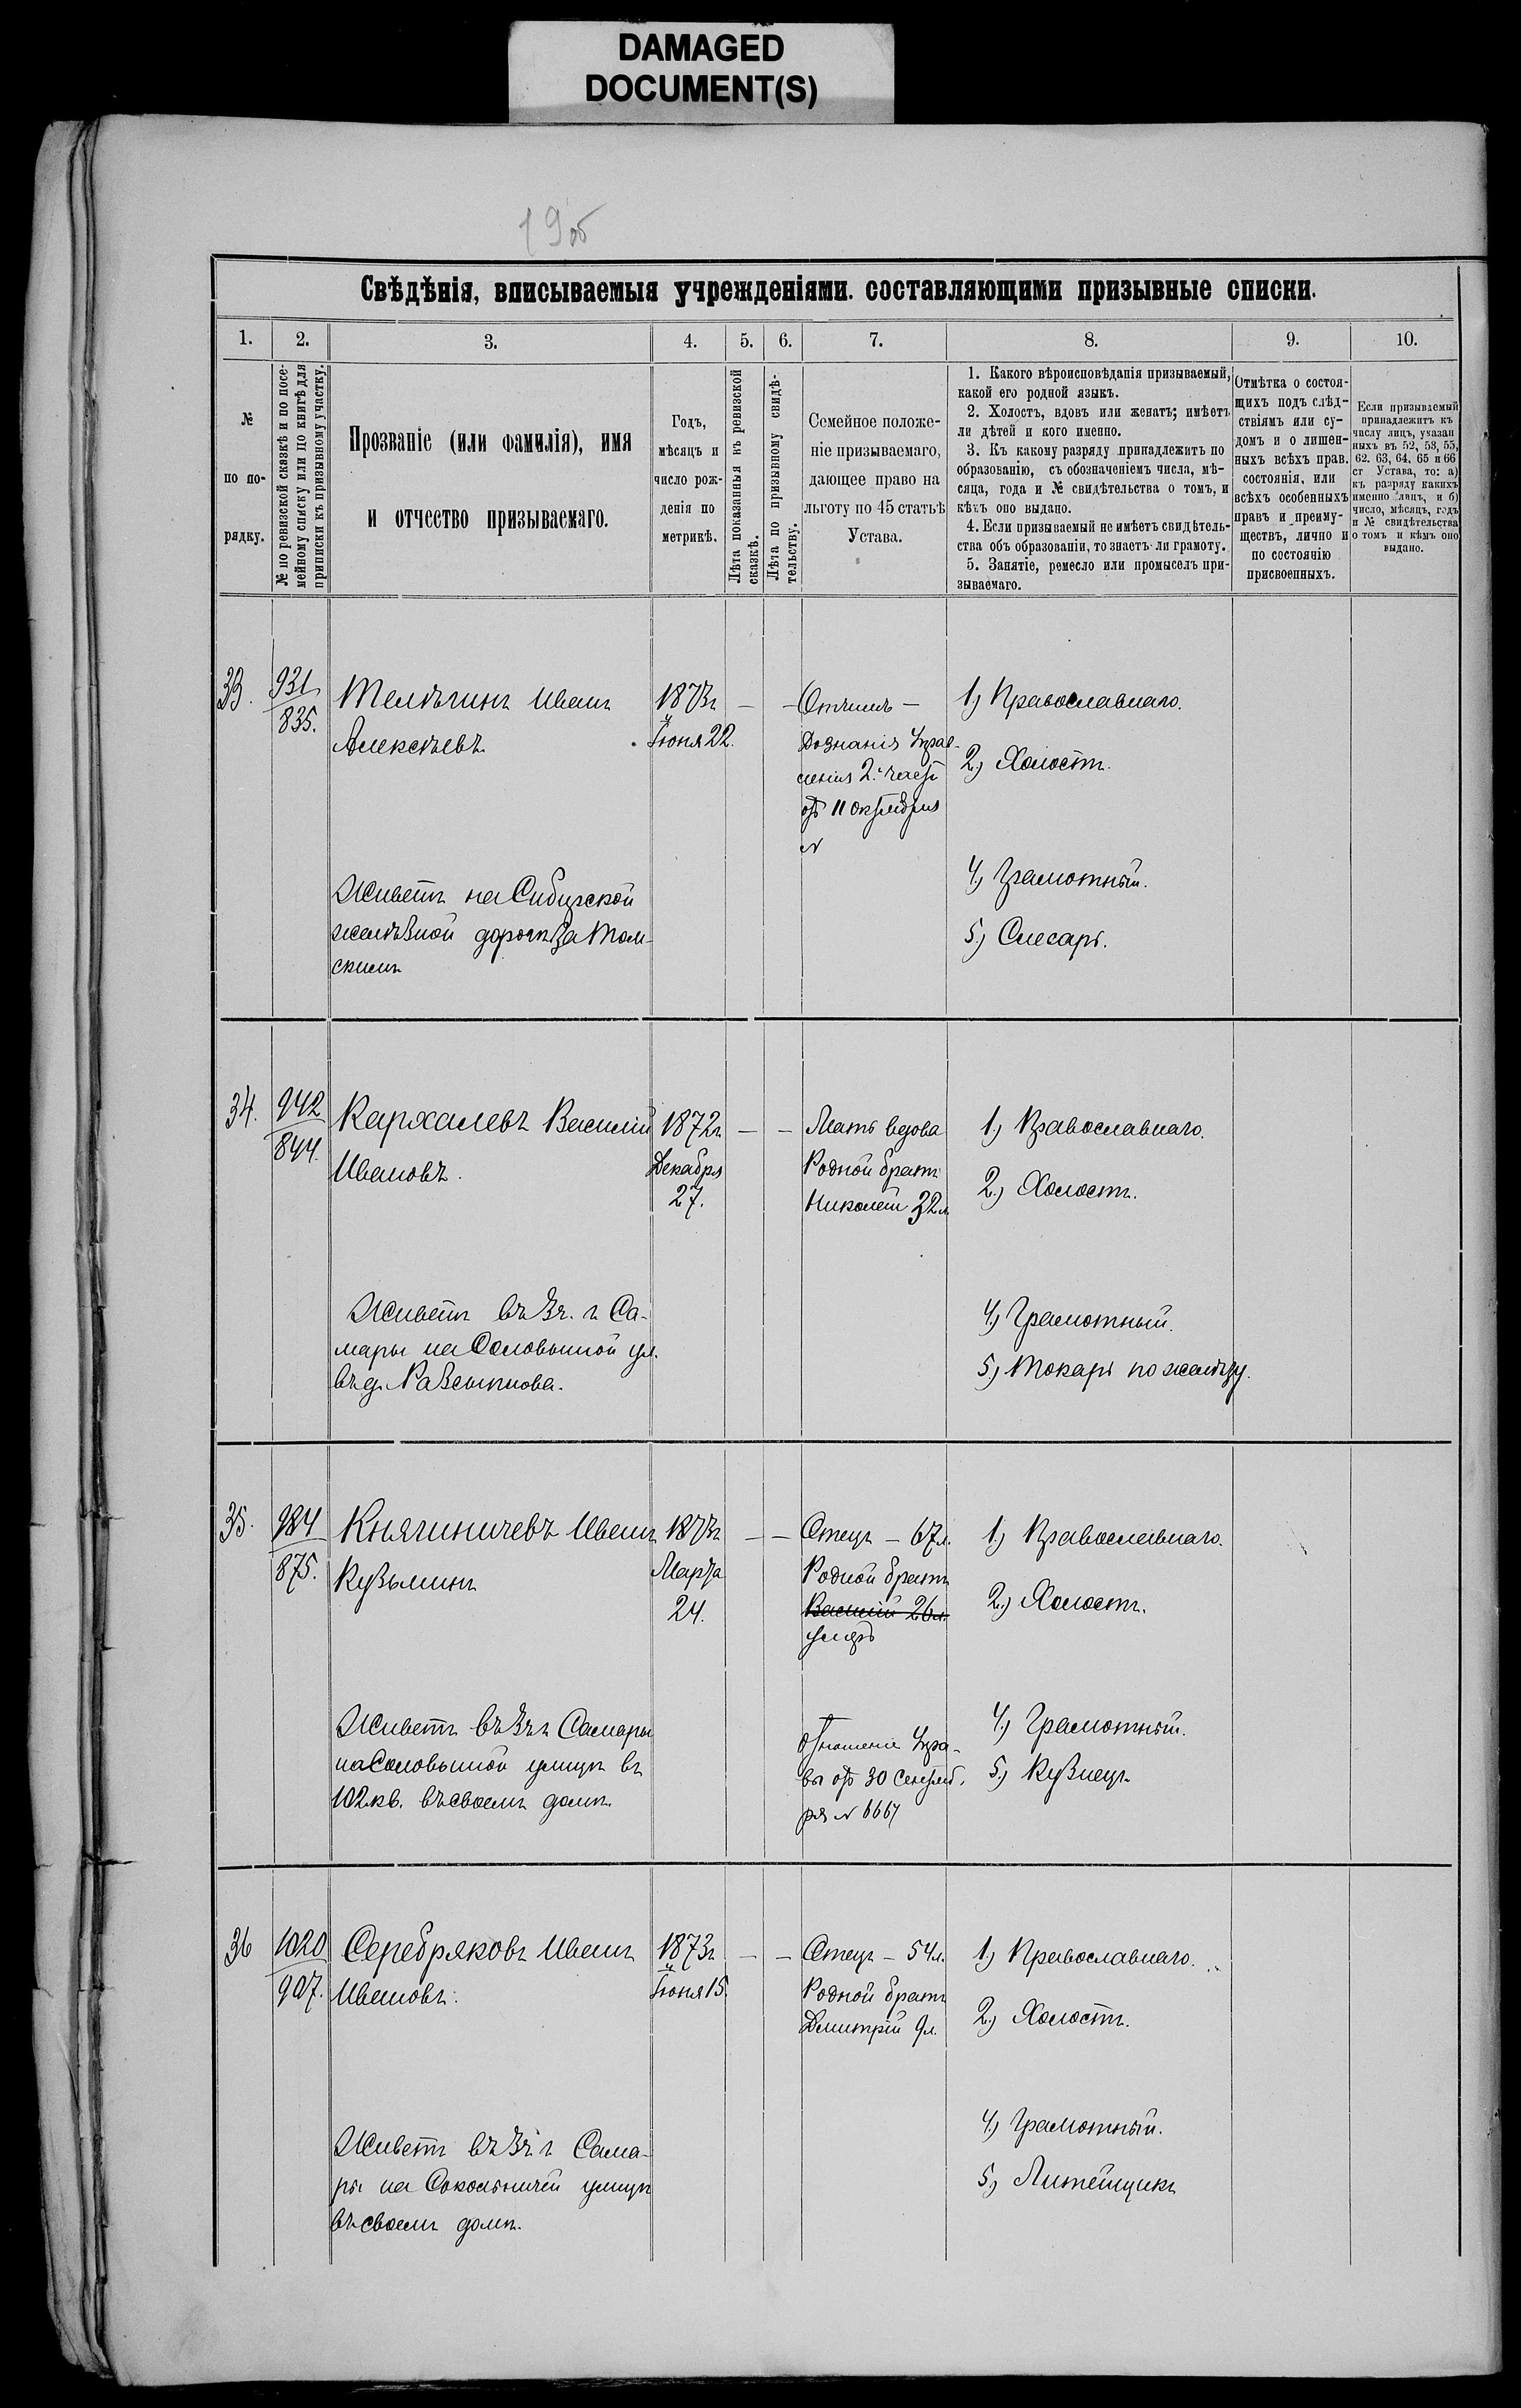 DAMAGED
DOCUMENT(S)
19об
Свѣдѣнія, вписываемыя учрежденіями. составляющими призывные списки.
1.
2.
3.
4.
5.
6.
7.
8.
9.
10.
№
по по-
рядку.
№ по ревизской сказкѣ и по посе-
мейному списку или по книгѣ для
приписки къ призывному участку.
Прозваніе (или фамилія), имя
и отчество призываемаго.
Годъ,
мѣсяцъ и
число рож-
денія по
метрикѣ.
Лѣта показанныя къ ревизской
сказкѣ.
Лѣта по призывному свидѣ-
тельству.
Семейное положе-
ніе призываемаго,
дающее право на
льготу по 45 статьѣ
Устава.
1. Какого вѣроисповѣданія призываемый,
какой его родной языкъ.
2. Холостъ, вдовъ или женатъ; имѣетъ
ли дѣтей и кого именно.
3. Къ какому разряду принадлежитъ по
образованію, съ обозначеніемъ числа, мѣ-
сяца, года и № свидѣтельства о томъ, и
кѣмъ оно выдано.
4. Если призываемый не имѣетъ свидѣтель-
ства объ образованіи, то знаетъ ли грамоту.
5. Занятіе, ремесло или промыселъ при-
зываемаго.
Отмѣтка о состоя-
щихъ подъ слѣд-
ствіямъ или су-
домъ и о лишен-
ныхъ всѣхъ прав.
состоянія, или
всѣхъ особенныхъ
правъ и преиму-
ществъ, лично и
по состоянію
присвоенныхъ.
Если призываемый
принадлежитъ къ
числу лицъ, указан
ныхъ въ 52, 53, 55,
62. 63, 64, 65 и 66
ст Устава, то: а)
къ разряду какихъ
именно лицъ, и б)
число, мѣсяцъ, годъ
и № свидѣтельства
о томъ и кѣмъ оно
выдано.
33.
931
835.
Телѣгинъ Иванъ
Алексѣевъ.
1873г
Іюня 22.
— —
Отчимъ —
Дознанія Управ-
ленія 2й части
отъ 11 октября
№
1) Православнаго.
2.) Холостъ.
4.) Грамотный.
5.) Слесарь.
Живетъ на Сибирской
желѣзной дорогѣ за Том-
скимъ
34.
942
844.
Кархалевъ Василій
Ивановъ.
1872г
Декабря
27.
— —
Мать вдова
Родной братъ
Николай 32л
1.) Православнаго.
2.) Холостъ.
4.) Грамотный.
5.) Токарь по желѣзу.
Живетъ въ 3ч. г. Са-
мары на Соловьиной ул.
въ д. Разсыпнова.
35.
984
875.
Княгиничевъ Иванъ
Кузьминъ
1873г
Марта
24.
— —
Отецъ — 67л.
Родной братъ
Василій 26л.
умеръ
отношеніе Упра-
вы отъ 30 Сентяб.
ря № 6667
1.) Православнаго.
2.) Холостъ.
4.) Грамотный.
5.) Кузнецъ.
Живетъ въ 3ч г Самары
на Соловьиной улицѣ въ
102 кв. въ своемъ домѣ.
36
1020
907.
Серебряковъ Иванъ
Ивановъ.
1873г
Іюня 15.
— —
Отецъ — 54л.
Родной братъ
Дмитрій 9л.
1.) Православнаго.
2.) Холостъ.
4.) Грамотный.
5.) Литейщикъ
Живетъ въ 3ч г Сама-
ры на Сокольничей улицѣ
въ своемъ домѣ.